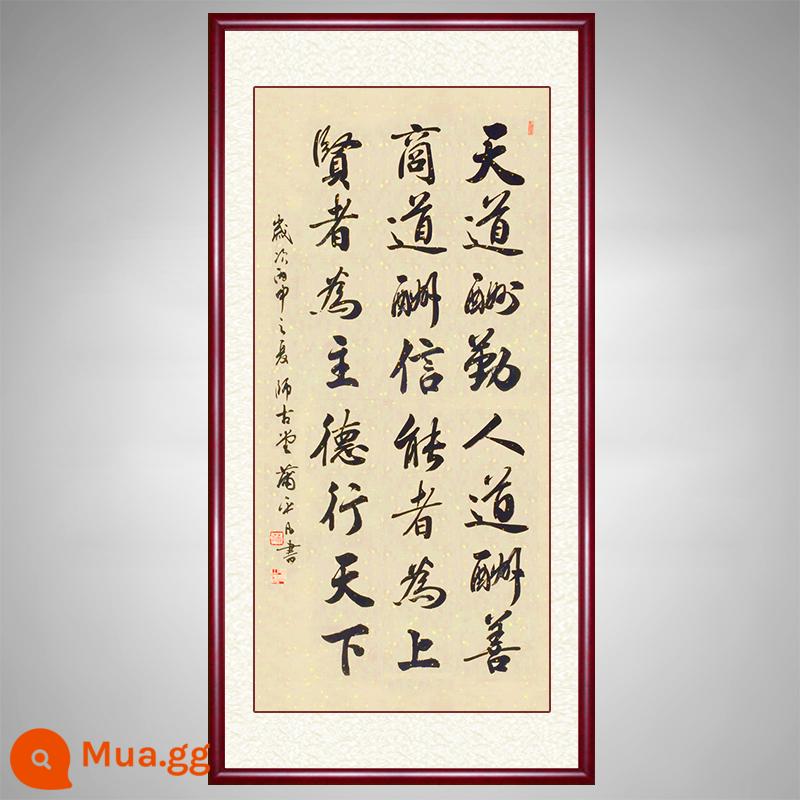 天道酬勤人道酬善
商道酬信能者為上
賢者為主德行天下
歲次丙申之夏師古堂蕭平凡書
Mua.gg